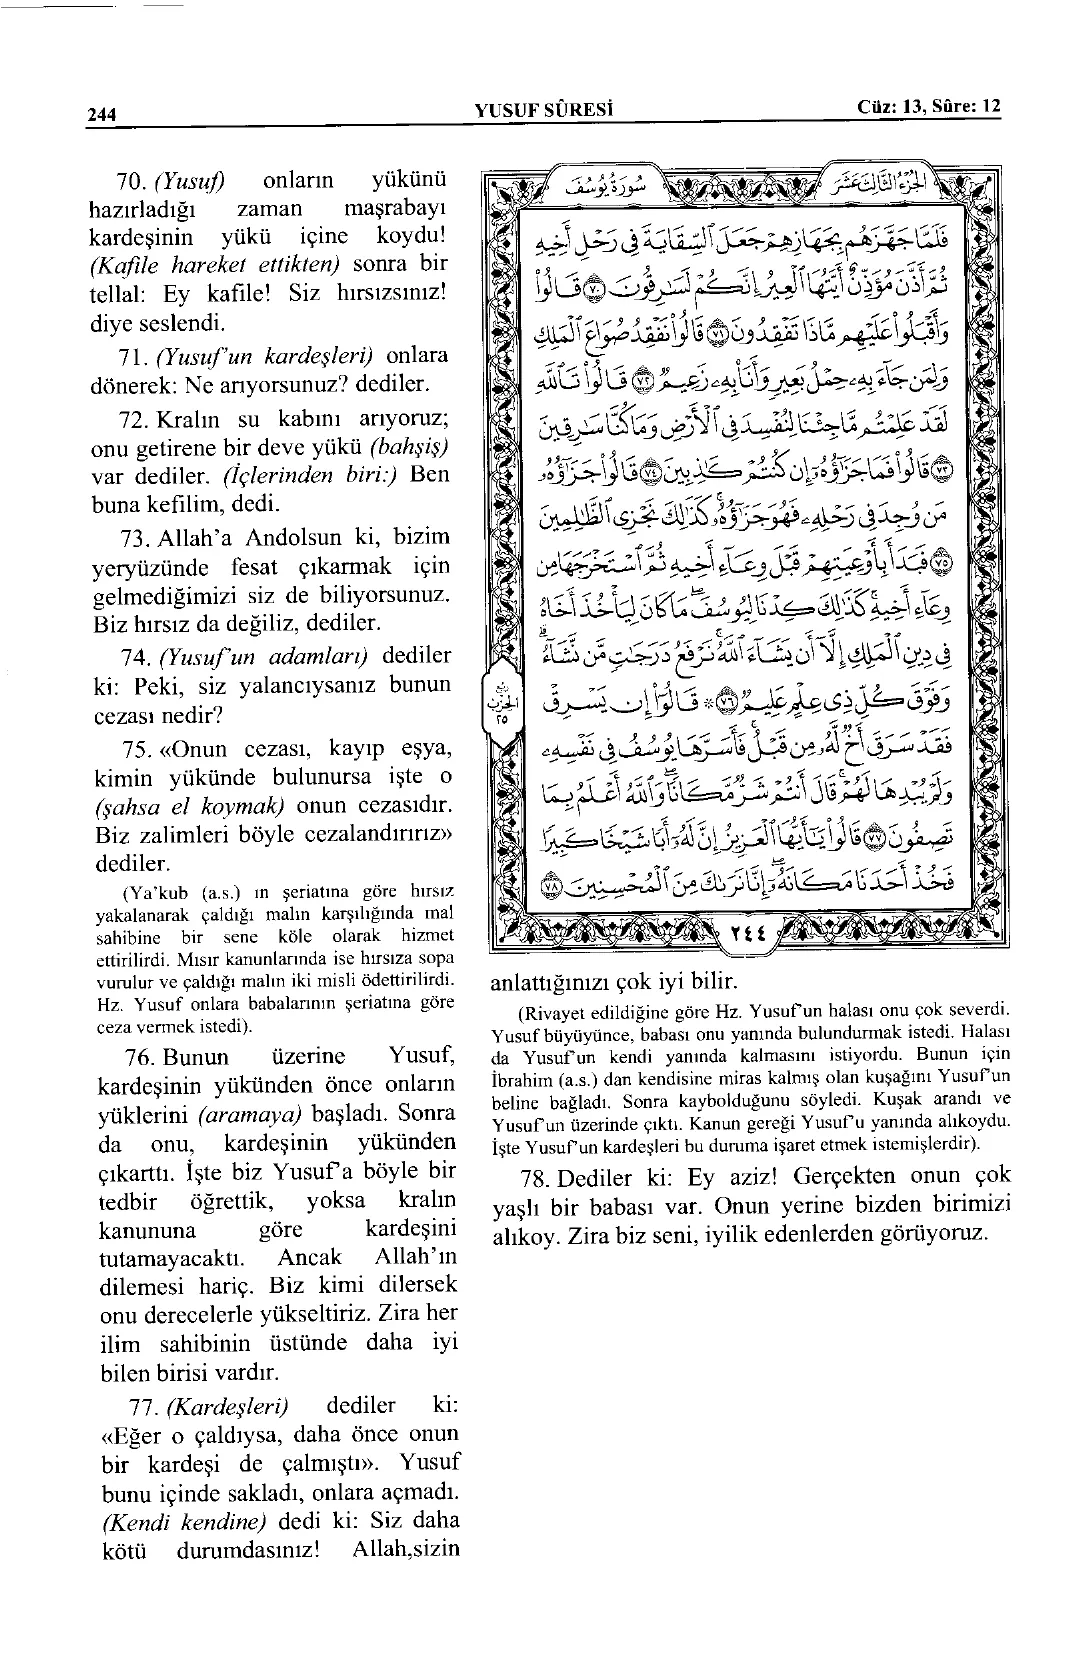 244
YUSUF SÛRESİ
Cüz: 13, Sûre: 12
70. (Yusuf) onların yükünü
hazırladığı zaman maşrabayı
kardeşinin yükü içine koydu!
(Kafile hareket ettikten) sonra bir
tellal: Ey kafile! Siz hırsızsınız!
diye seslendi.
71. (Yusuf'un kardeşleri) onlara
dönerek: Ne arıyorsunuz? dediler.
72. Kralın su kabını arıyoruz;
onu getirene bir deve yükü (bahşiş)
var dediler. (İçlerinden biri:) Ben
buna kefilim, dedi.
73. Allah'a Andolsun ki, bizim
yeryüzünde fesat çıkarmak için
gelmediğimizi siz de biliyorsunuz.
Biz hırsız da değiliz, dediler.
74. (Yusuf'un adamları) dediler
ki: Peki, siz yalancıysanız bunun
cezası nedir?
75. «Onun cezası, kayıp eşya,
kimin yükünde bulunursa işte o
(şahsa el koymak) onun cezasıdır.
Biz zalimleri böyle cezalandırırız»
dediler.
(Ya'kub (a.s.) ın şeriatına göre hırsız
yakalanarak çaldığı malın karşılığında mal
sahibine bir sene köle olarak hizmet
ettirilirdi. Mısır kanunlarında ise hırsıza sopa
vurulur ve çaldığı malın iki misli ödettirilirdi.
Hz. Yusuf onlara babalarının şeriatına göre
ceza vermek istedi).
76. Bunun üzerine Yusuf,
kardeşinin yükünden önce onların
yüklerini (aramaya) başladı. Sonra
da onu, kardeşinin yükünden
çıkarttı. İşte biz Yusuf'a böyle bir
tedbir öğrettik, yoksa kralın
kanununa göre kardeşini
tutamayacaktı. Ancak Allah'ın
dilemesi hariç. Biz kimi dilersek
onu derecelerle yükseltiriz. Zira her
ilim sahibinin üstünde daha iyi
bilen birisi vardır.
77. (Kardeşleri) dediler ki:
«Eğer o çaldıysa, daha önce onun
bir kardeşi de çalmıştı». Yusuf
bunu içinde sakladı, onlara açmadı.
(Kendi kendine) dedi ki: Siz daha
kötü durumdasınız! Allah,sizin
سُورَةُ يُوسُفَ
الجُزْءُ الثَّالِثَ عَشَرَ
فَلَمَّا جَهَّزَهُم بِجَهَازِهِمْ جَعَلَ ٱلسِّقَايَةَ فِى رَحْلِ أَخِيهِ
ثُمَّ أَذَّنَ مُؤَذِّنٌ أَيَّتُهَا ٱلْعِيرُ إِنَّكُمْ لَسَٰرِقُونَ ﴿٧٠﴾ قَالُوا۟
وَأَقْبَلُوا۟ عَلَيْهِم مَّاذَا تَفْقِدُونَ ﴿٧١﴾ قَالُوا۟ نَفْقِدُ صُوَاعَ ٱلْمَلِكِ
وَلِمَن جَآءَ بِهِۦ حِمْلُ بَعِيرٍ وَأَنَا۠ بِهِۦ زَعِيمٌ ﴿٧٢﴾ قَالُوا۟ تَٱللَّهِ
لَقَدْ عَلِمْتُم مَّا جِئْنَا لِنُفْسِدَ فِى ٱلْأَرْضِ وَمَا كُنَّا سَٰرِقِينَ
﴿٧٣﴾ قَالُوا۟ فَمَا جَزَٰٓؤُهُۥٓ إِن كُنتُمْ كَٰذِبِينَ ﴿٧٤﴾ قَالُوا۟ جَزَٰٓؤُهُۥ
مَن وُجِدَ فِى رَحْلِهِۦ فَهُوَ جَزَٰٓؤُهُۥ كَذَٰلِكَ نَجْزِى ٱلظَّٰلِمِينَ
﴿٧٥﴾ فَبَدَأَ بِأَوْعِيَتِهِمْ قَبْلَ وِعَآءِ أَخِيهِ ثُمَّ ٱسْتَخْرَجَهَا مِن
وِعَآءِ أَخِيهِ كَذَٰلِكَ كِدْنَا لِيُوسُفَ مَا كَانَ لِيَأْخُذَ أَخَاهُ
فِى دِينِ ٱلْمَلِكِ إِلَّآ أَن يَشَآءَ ٱللَّهُ نَرْفَعُ دَرَجَٰتٍ مَّن نَّشَآءُ
وَفَوْقَ كُلِّ ذِى عِلْمٍ عَلِيمٌ ﴿٧٦﴾ * قَالُوٓا۟ إِن يَسْرِقْ
فَقَدْ سَرَقَ أَخٌ لَّهُۥ مِن قَبْلُ فَأَسَرَّهَا يُوسُفُ فِى نَفْسِهِۦ
وَلَمْ يُبْدِهَا لَهُمْ قَالَ أَنتُمْ شَرٌّ مَّكَانًا وَٱللَّهُ أَعْلَمُ بِمَا
تَصِفُونَ ﴿٧٧﴾ قَالُوا۟ يَٰٓأَيُّهَا ٱلْعَزِيزُ إِنَّ لَهُۥٓ أَبًا شَيْخًا كَبِيرًا
فَخُذْ أَحَدَنَا مَكَانَهُۥٓ إِنَّا نَرَىٰكَ مِنَ ٱلْمُحْسِنِينَ ﴿٧٨﴾
ربع
الحزب
٢٥
٢٤٤
anlattığınızı çok iyi bilir.
(Rivayet edildiğine göre Hz. Yusuf'un halası onu çok severdi.
Yusuf büyüyünce, babası onu yanında bulundurmak istedi. Halası
da Yusuf'un kendi yanında kalmasını istiyordu. Bunun için
İbrahim (a.s.) dan kendisine miras kalmış olan kuşağını Yusuf'un
beline bağladı. Sonra kaybolduğunu söyledi. Kuşak arandı ve
Yusuf'un üzerinde çıktı. Kanun gereği Yusuf'u yanında alıkoydu.
İşte Yusuf'un kardeşleri bu duruma işaret etmek istemişlerdir).
78. Dediler ki: Ey aziz! Gerçekten onun çok
yaşlı bir babası var. Onun yerine bizden birimizi
alıkoy. Zira biz seni, iyilik edenlerden görüyoruz.